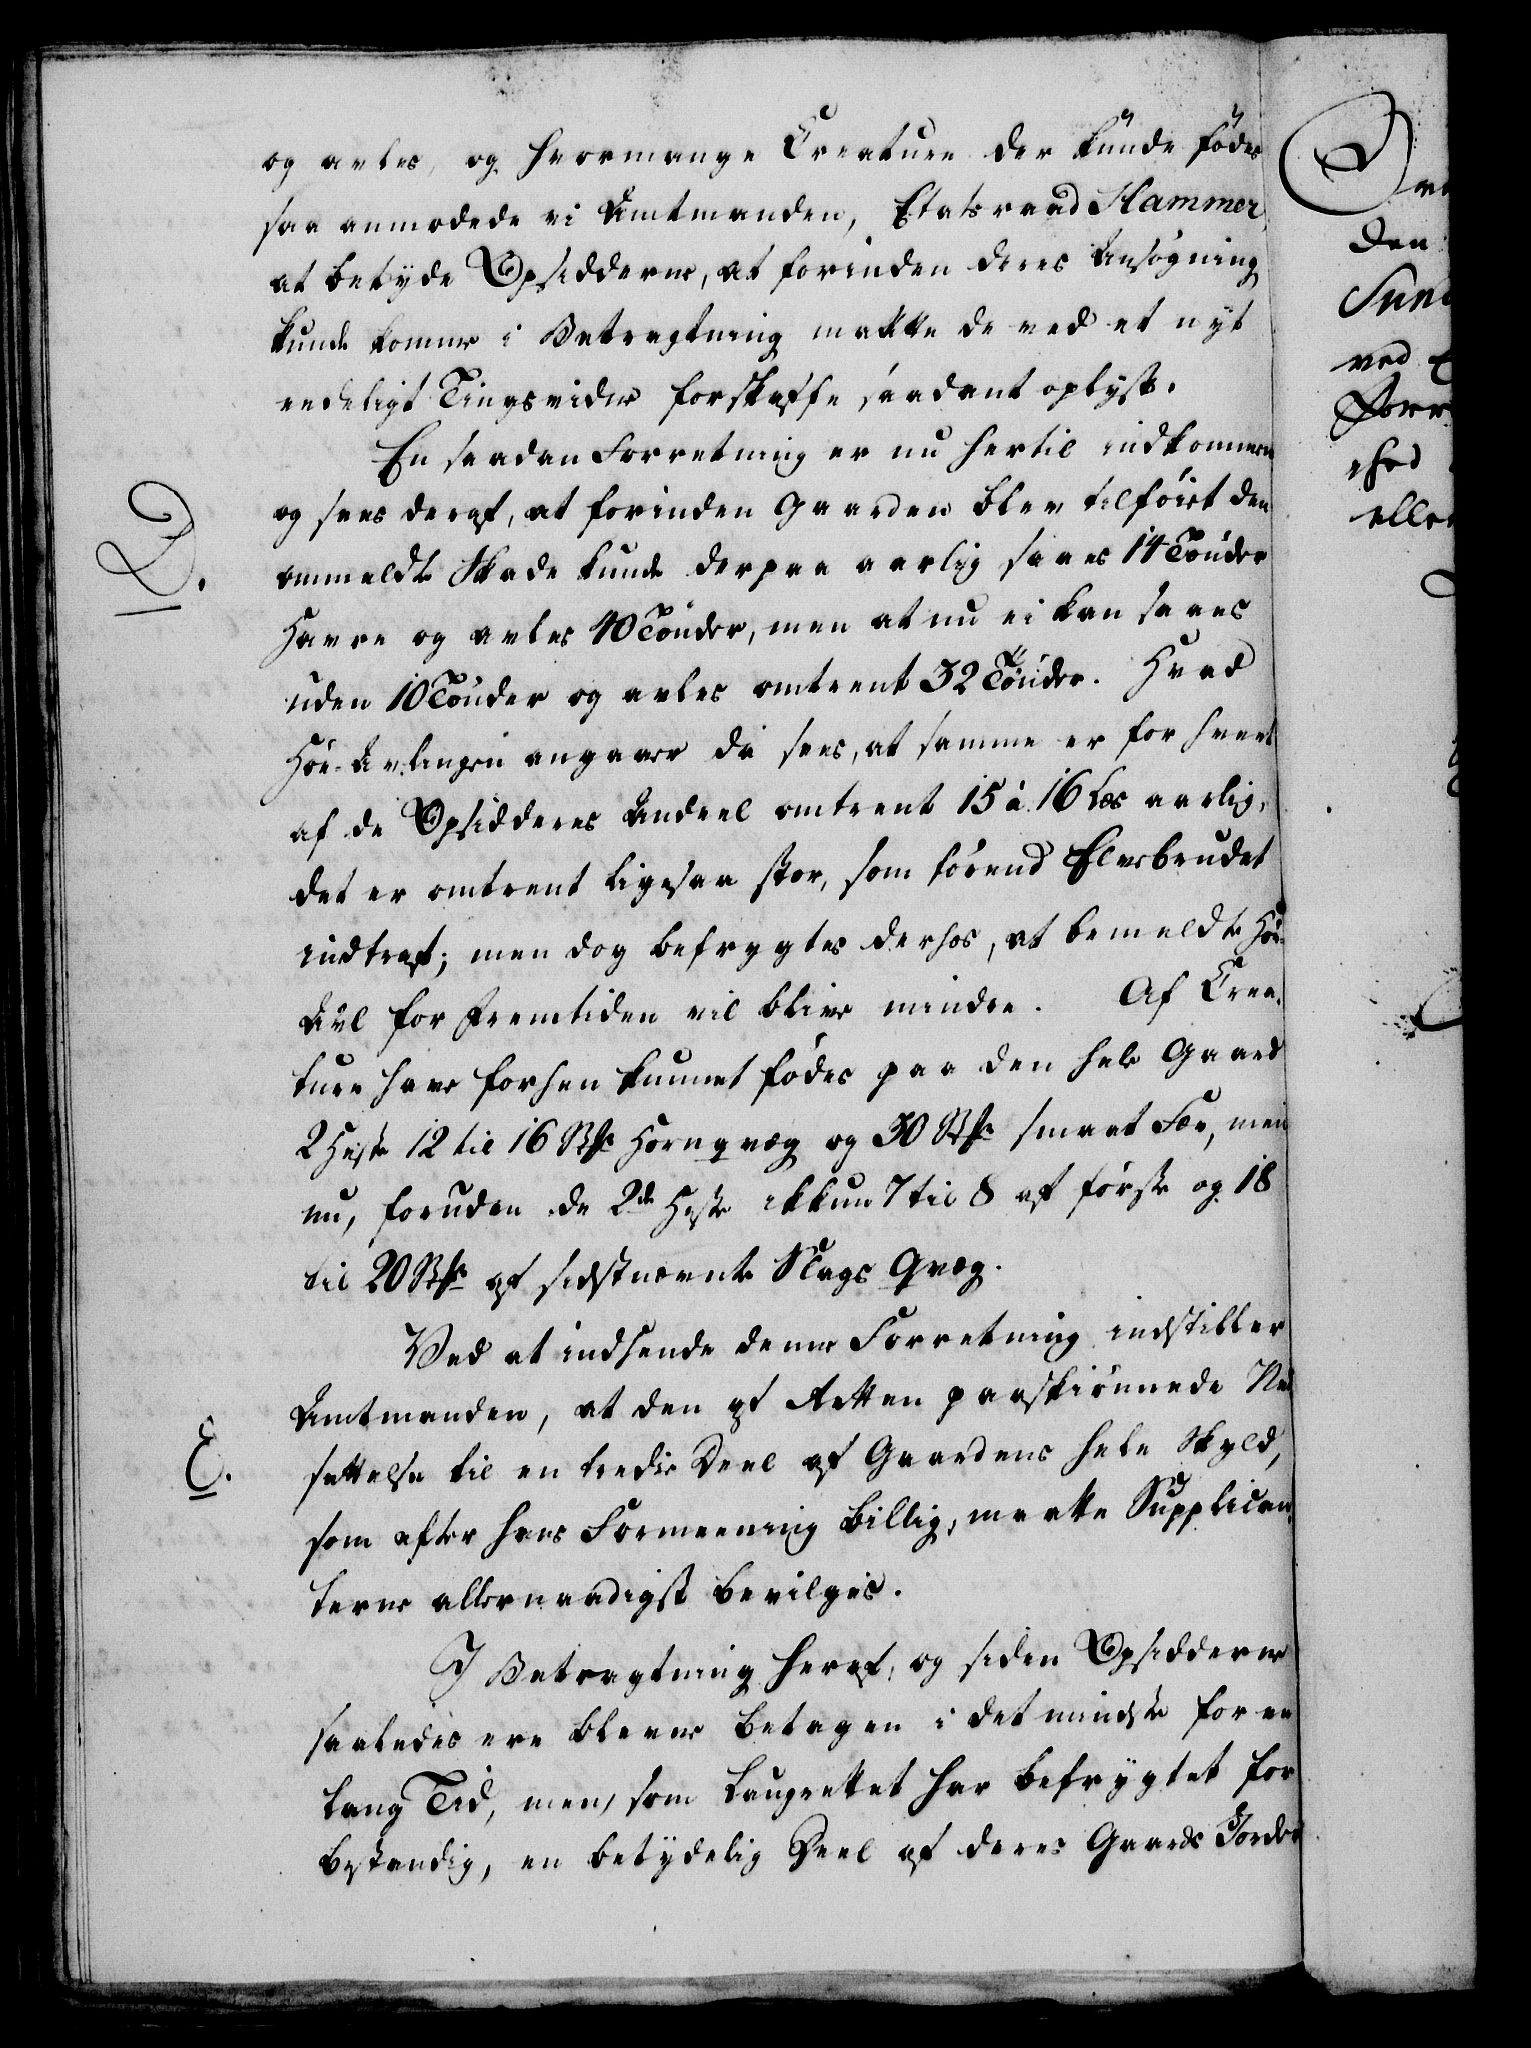 og avles, og hvormange Creature der kunde födes
saa anmodede vi Amtmanden, Etatsraad Hammer,
at betyde Opsidderne, at forinden deres Ansögning
kunde komme i Betragtning maatte de ved et nyt
eedeligt Tingsvidne forskaffe saadant oplyst.
En saadan Forretning er nu hertil indkommen
og sees deraf, at forinden Gaarden blev tilföiet den
D.
anmeldte Skade kunde derpaa aarlig saaes 14 Tönder
Havre og avles 40 Tönder, men at nu ei kan saaes
uden 10 Tönder og avles omtrent 32 Tönder. Hvad
Höe-Avlingen angaaer da sees, at samme er for hvert
af de Opsidderes Andeel omtrent 15 à 16 Læs aarlig,
det er omtrent ligesaa stor, som förend Elvebrudet
indtraf; men dog befrygtes derhos, at bemeldte Höe-
Avl for Fremtiden vil blive mindre. Af Crea-
ture have forhen kunnet födes paa den hele Gaard
2 Heste 12 til 16 Stkr Hornqvæg og 30 Stkr smaat Fæe, men
nu, foruden de 2de Heste ikkun 7 til 8 af förste og 18
til 20 Stkr af sidstnævnte Slags Qvæg.
Ved at indsende denne Forretning indstiller
Amtmanden, at den af Retten paaskiönnede Ned
E.
sættelse til en tredie Deel af Gaardens hele Skyld,
som efter hans Formeening billig, maatte Supplican-
terne allernaadigst bevilges.
I Betragtning heraf, og siden Opsidderne
saaledes ere blevne betagen i det mindste for en
lang Tid, men, som Laugrettet har befrygtet for
bestandig, en betydelig Deel af deres Gaards Jorder
den
ved
eller